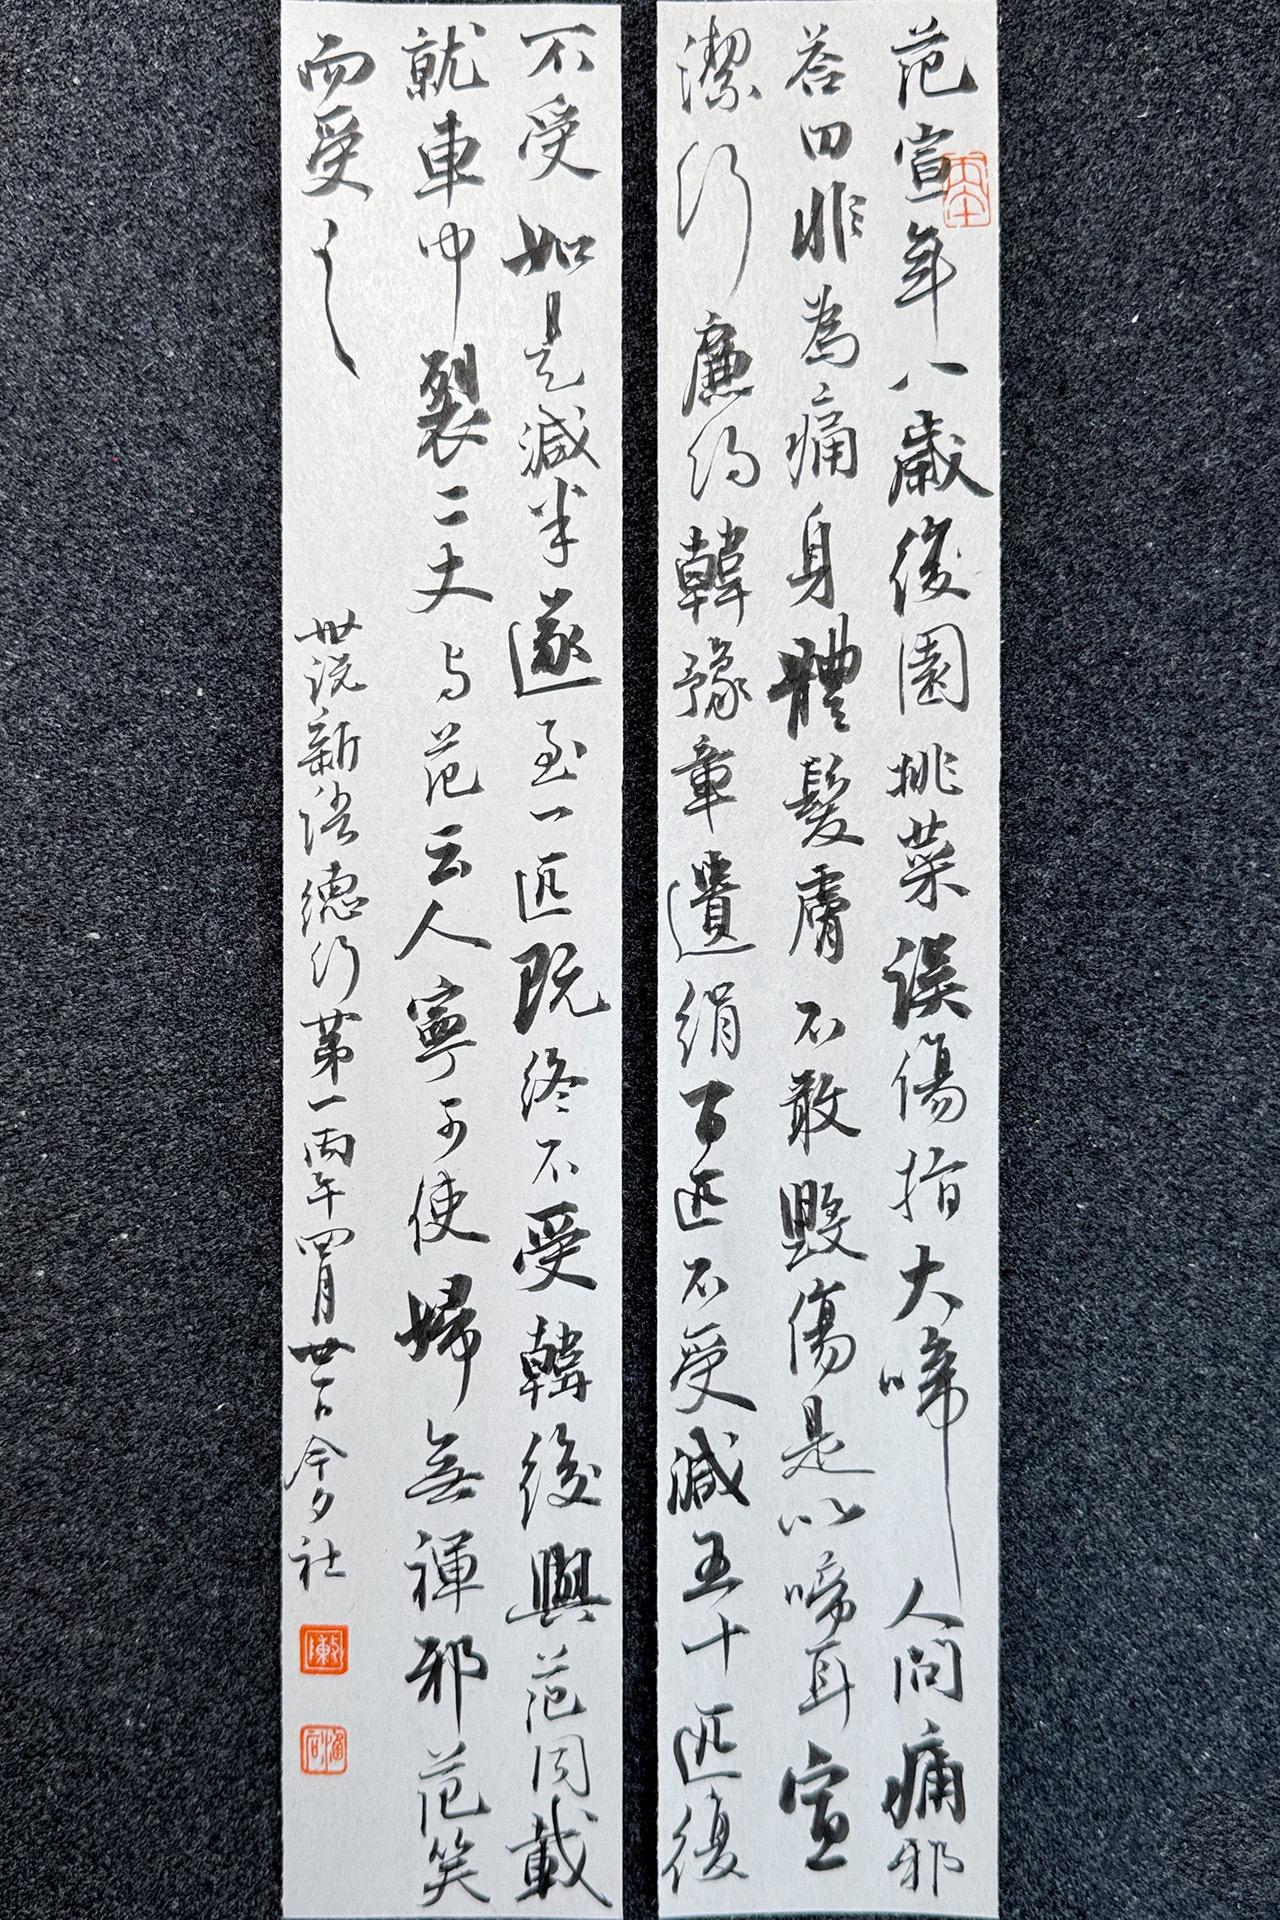 范宣年八歲後園挑菜誤傷指大啼人問痛邪
荅曰非為痛身體髮膚不敢毀傷是以啼耳宣
潔行廉約韓豫章遺絹百匹不受減五十匹復
不受如是減半遂至一匹既終不受韓後與范同載
就車中裂二丈与范云人寧可使婦無褌邪范笑
而受之
世说新語德行第一丙午四月廿一日今夕社